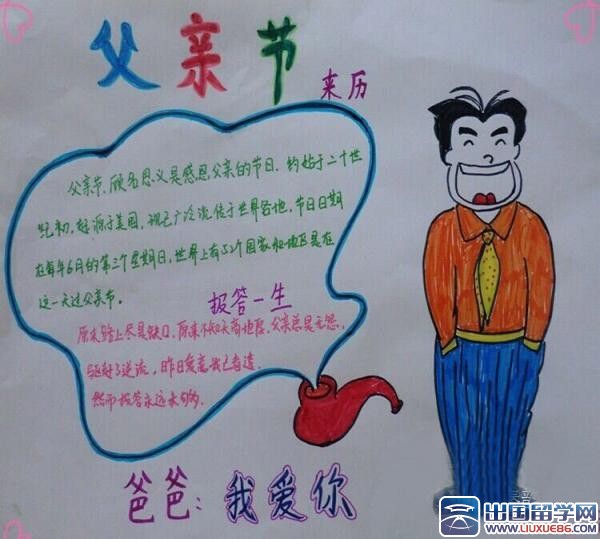 父亲节
来历
父亲节、顾名思义是感恩父亲的节日. 约始于二十世
纪初, 起源于美国, 现已广泛流传于世界各地, 节日日期
在每年6月的第三个星期日, 世界上有52个国家和地区是在
这一天过父亲节。
报答一生
原来路上尽是缺口, 原来不知天高地厚, 父亲总是无怨,
昨日
然而报答永远未够.
爸爸: 我爱你
出国留学网
WWW.LIUXUE86.COM